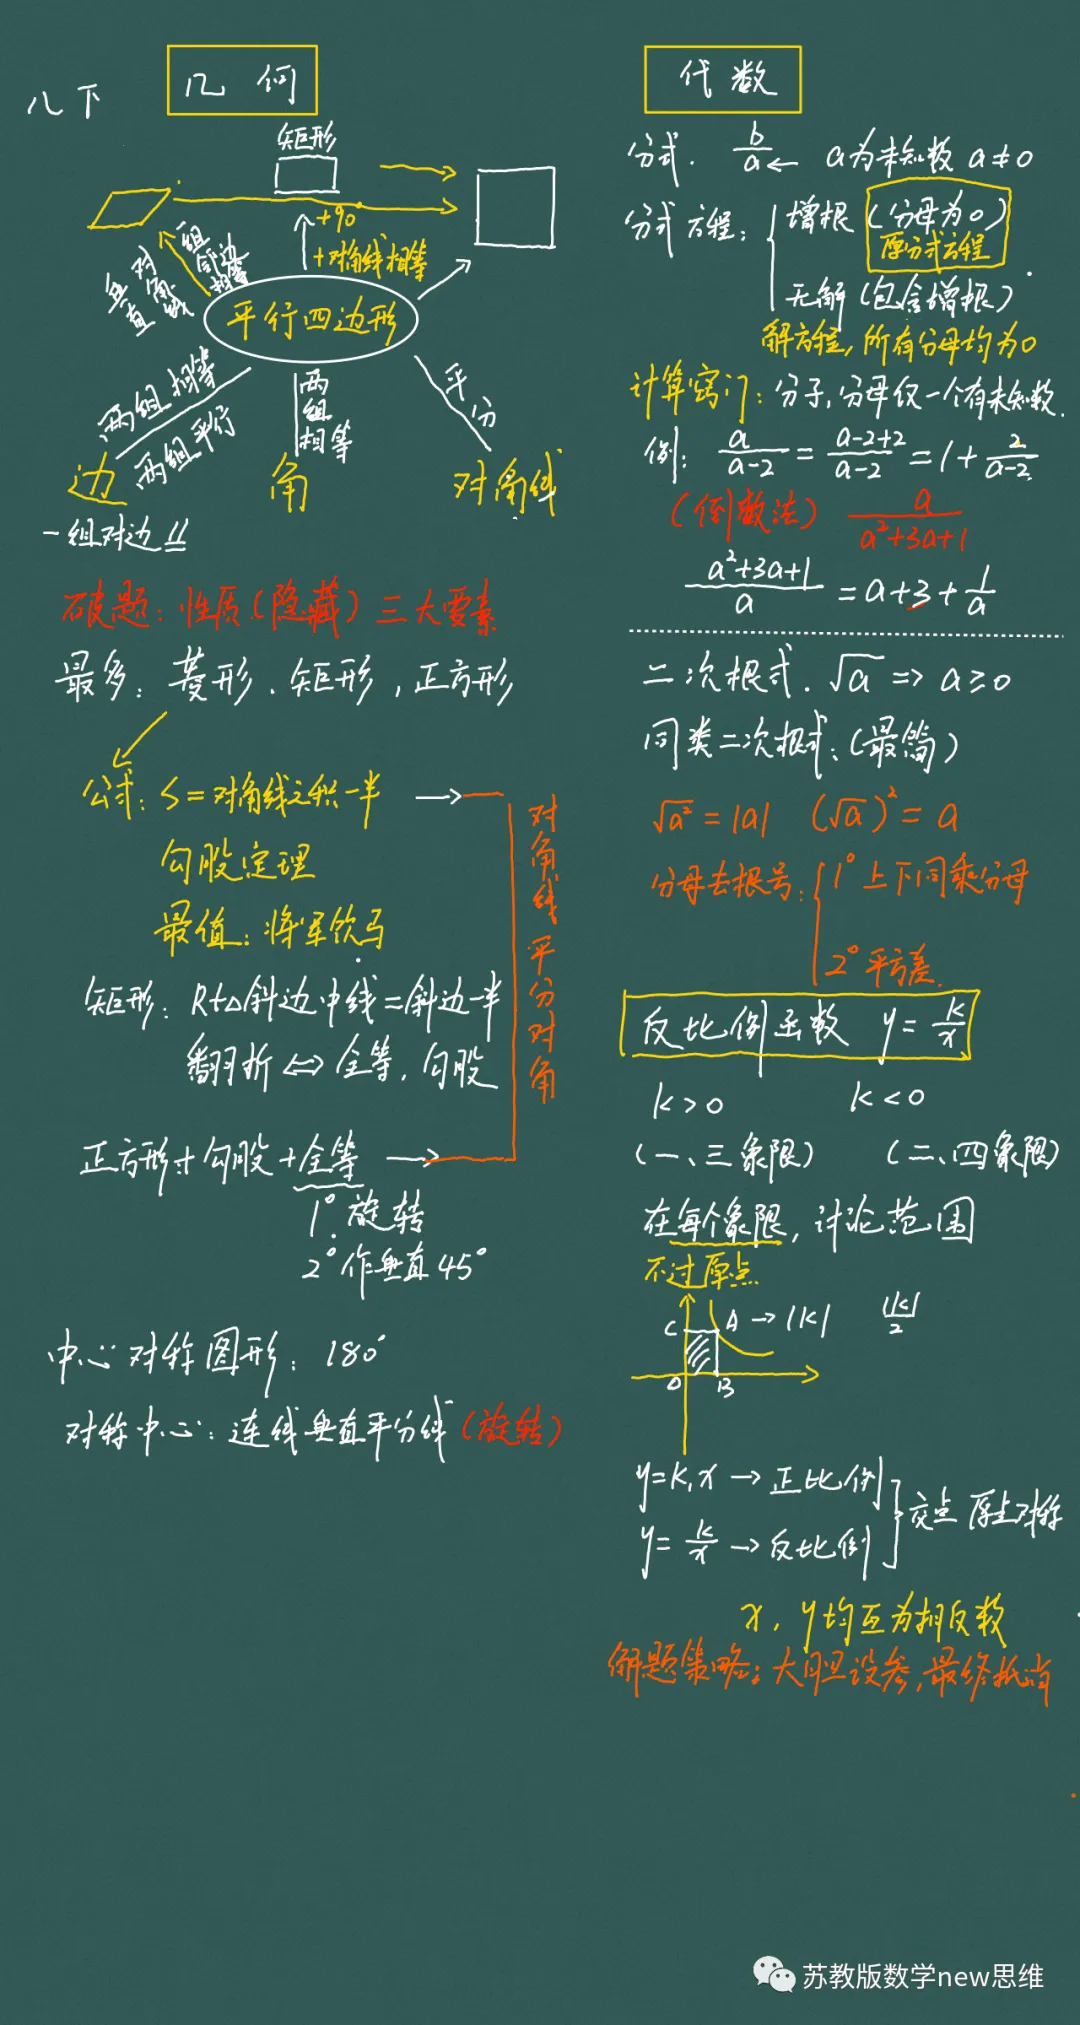 八下
几何
矩形
+90°
+对角线相等
一组邻边相等
对角线垂直
平行四边形
两组相等
两组平行
两组相等
平分
边
角
对角线
一组对边∥=
破题：性质(隐藏)三大要素
最多：菱形.矩形,正方形
公式：S=对角线之积一半
勾股定理
最值：将军饮马
矩形：Rt△斜边中线=斜边一半
翻折⇔全等,勾股
正方形+勾股+全等
1°.旋转
2°作垂直45°
对角线平分对角
中心对称图形：180°
对称中心：连线垂直平分线(旋转)
代数
分式. b/a ← a为未知数 a≠0
分式方程：
增根(分母为0)
原分式方程
无解(包含增根)
解方程,所有分母均为0
计算窍门：分子,分母仅一个有未知数.
例： a/(a-2)=(a-2+2)/(a-2)=1+2/(a-2)
(倒数法) a/(a²+3a+1)
(a²+3a+1)/a=a+3+1/a
二次根式.√a⇒a≥0
同类二次根式：(最简)
√a²=|a| (√a)²=a
分母去根号：
1°上下同乘分母
2°平方差.
反比例函数 y=k/x
k>0 k<0
(一、三象限) (二、四象限)
在每个象限,讨论范围
不过原点
C A→|k| |k|/2
O B
y=k₁x→正比例
y=k/x→反比例
交点 原点对称
x,y均互为相反数
解题策略：大胆设参,最终抵消
苏教版数学new思维